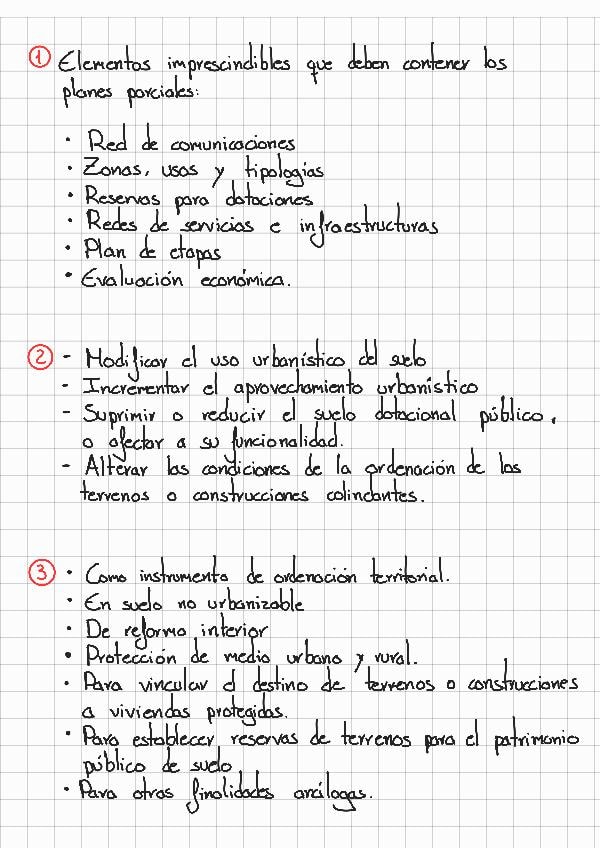 1 Elementos imprescindibles que deben contener los
planes parciales:
• Red de comunicaciones
• Zonas, usos y tipologías
• Reservas para dotaciones
• Redes de servicios e infraestructuras
• Plan de etapas
• Evaluación económica.
2 - Modificar el uso urbanístico del suelo
- Incrementar el aprovechamiento urbanístico
- Suprimir o reducir el suelo dotacional público,
o afectar a su funcionalidad.
- Alterar las condiciones de la ordenación de los
terrenos o construcciones colindantes.
3 • Como instrumento de ordenación territorial.
• En suelo no urbanizable
• De reforma interior
• Protección de medio urbano y rural.
• Para vincular el destino de terrenos o construcciones
a viviendas protegidas.
• Para establecer reservas de terrenos para el patrimonio
público de suelo
• Para otras finalidades análogas.